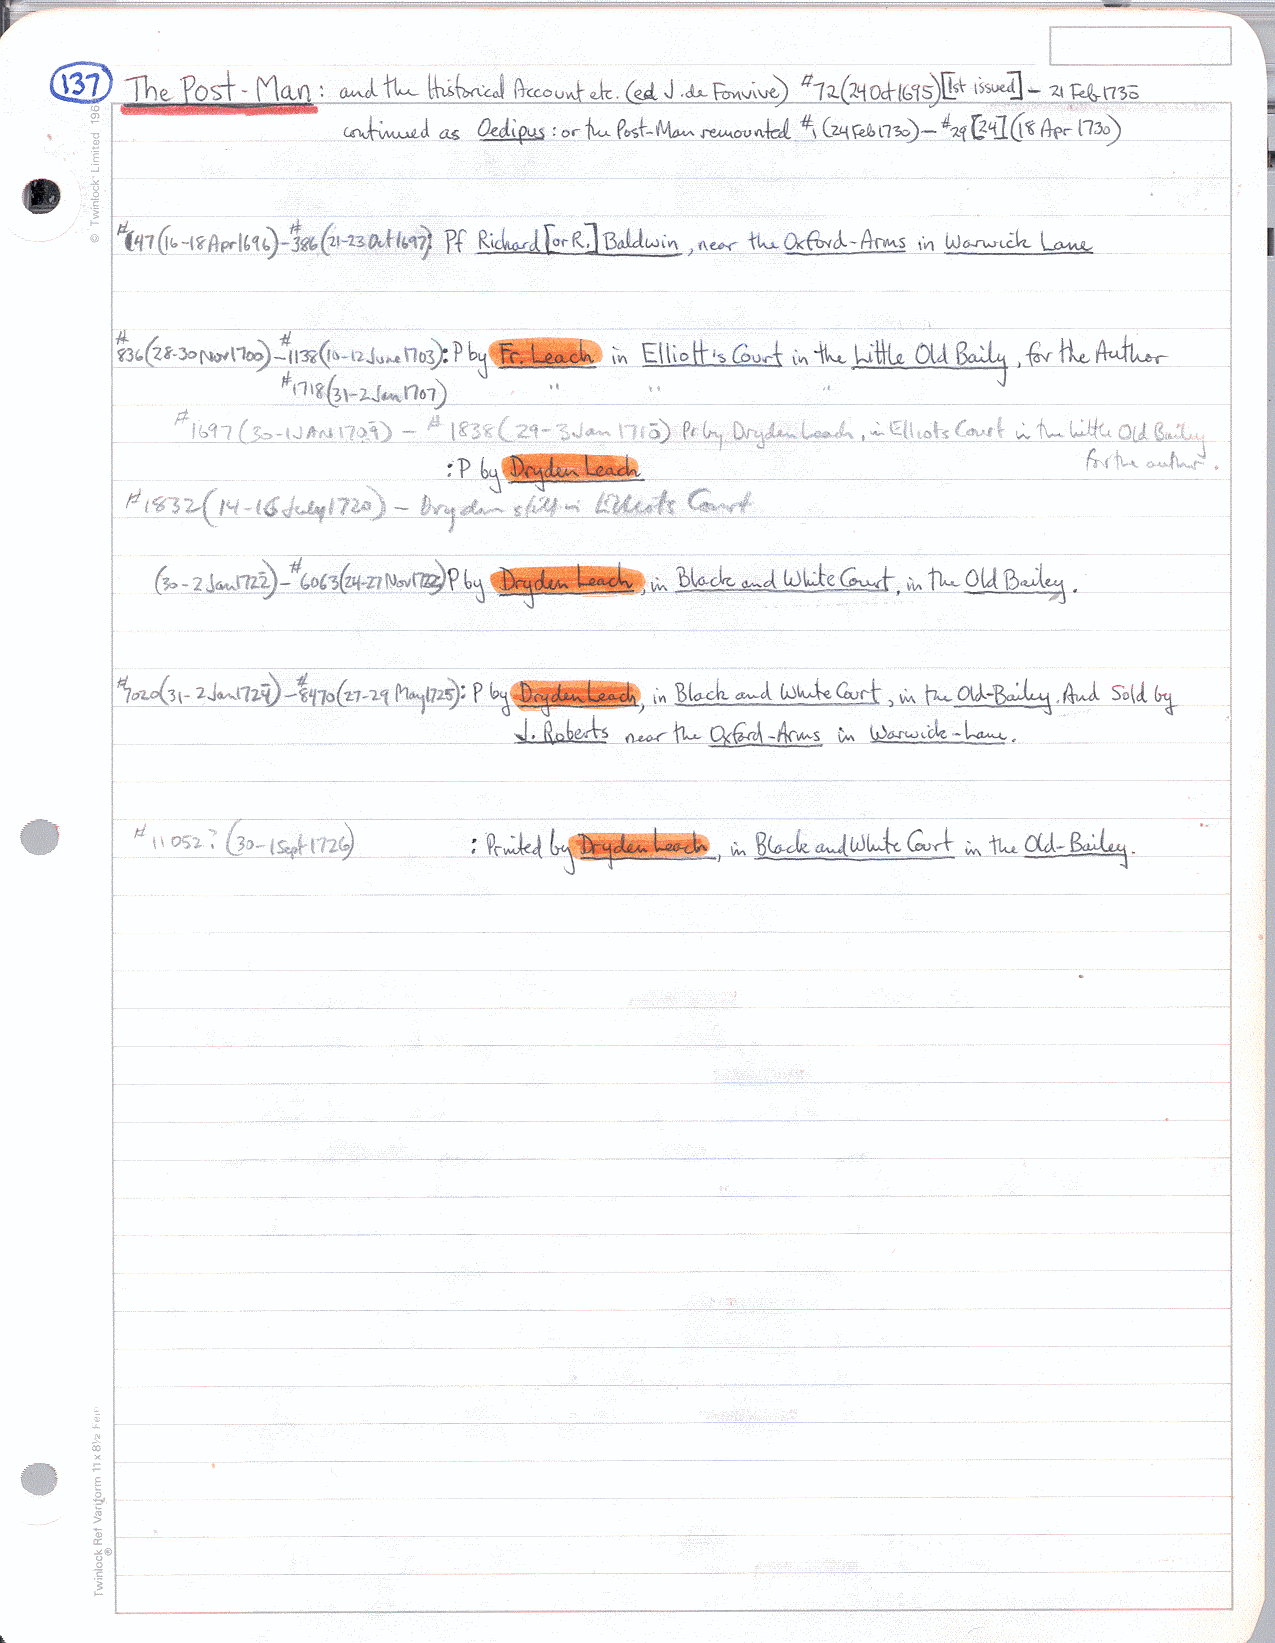 137 The Post-Man: and the Historical Account etc. (ed J. de Fonvive) #72 (24 Oct 1695) [1st issued] - 21 Feb 1730
continued as Oedipus: or the Post-Man remounted #1 (24 Feb 1730) - #29 [24] (18 Apr 1730)
© Twinlock Limited 196
#147 (16-18 Apr 1696) - #386 (21-23 Oct 1697) Pf Richard [or R.] Baldwin, near the Oxford-Arms in Warwick Lane
#836 (28-30 Nov 1700) - #1138 (10-12 June 1703): P by Fr. Leach in Elliott's Court in the Little Old Baily, for the Author
#1718 (31-2 Jan 1707) " " "
#1697 (30-1 JAN 1709) - #1838 (29-3 Jan 1710) Pr by Dryden Leach, in Elliots Court in the Little Old Bailey
for the author.
: P by Dryden Leach
#1832 (14-16 July 1720) - Dryden still in Elliots Court
(30-2 Jan 1722) - #6063 (24-27 Nov 1722) P by Dryden Leach, in Black and White Court, in the Old Bailey.
#7020 (31-2 Jan 1724) - #8470 (27-29 May 1725): P by Dryden Leach, in Black and White Court, in the Old-Bailey. And Sold by
J. Roberts near the Oxford-Arms in Warwick-Lane.
#11052? (30-1 Sept 1726) : Printed by Dryden Leach, in Black and White Court in the Old-Bailey.
Twinlock Ref Variform 11 x 8½